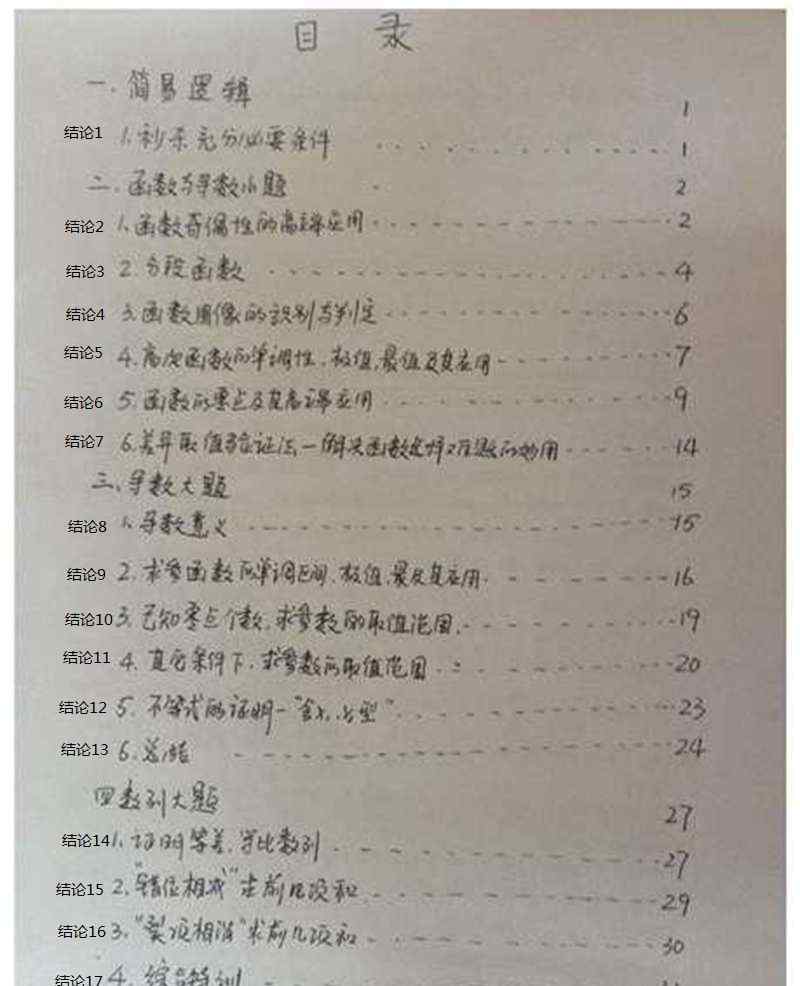 目 录
一.简易逻辑 1
结论1 1.秒杀充分必要条件 1
二.函数与导数小题 2
结论2 1.函数奇偶性的高端应用 2
结论3 2.分段函数 4
结论4 3.函数图像的识别与判定 6
结论5 4.高次函数的单调性.极值.最值及其应用 7
结论6 5.函数的零点及其高端应用 9
结论7 6.差异取值验证法一解决函数选择难题的妙用 14
三.导数大题 15
结论8 1.导数意义 15
结论9 2.求参函数的单调区间.极值.最及其应用. 16
结论10 3.已知零点个数.求参数的取值范围. 19
结论11 4.其它条件下.求参数的取值范围 20
结论12 5.不等式的证明一 23
结论13 6.总结 24
四数列大题 27
结论14 1.证明等差.等比数列 27
结论15 2."错位相减"求前几项和 29
结论16 3."裂项相消"求前几项和 30
结论17 4.综合特训